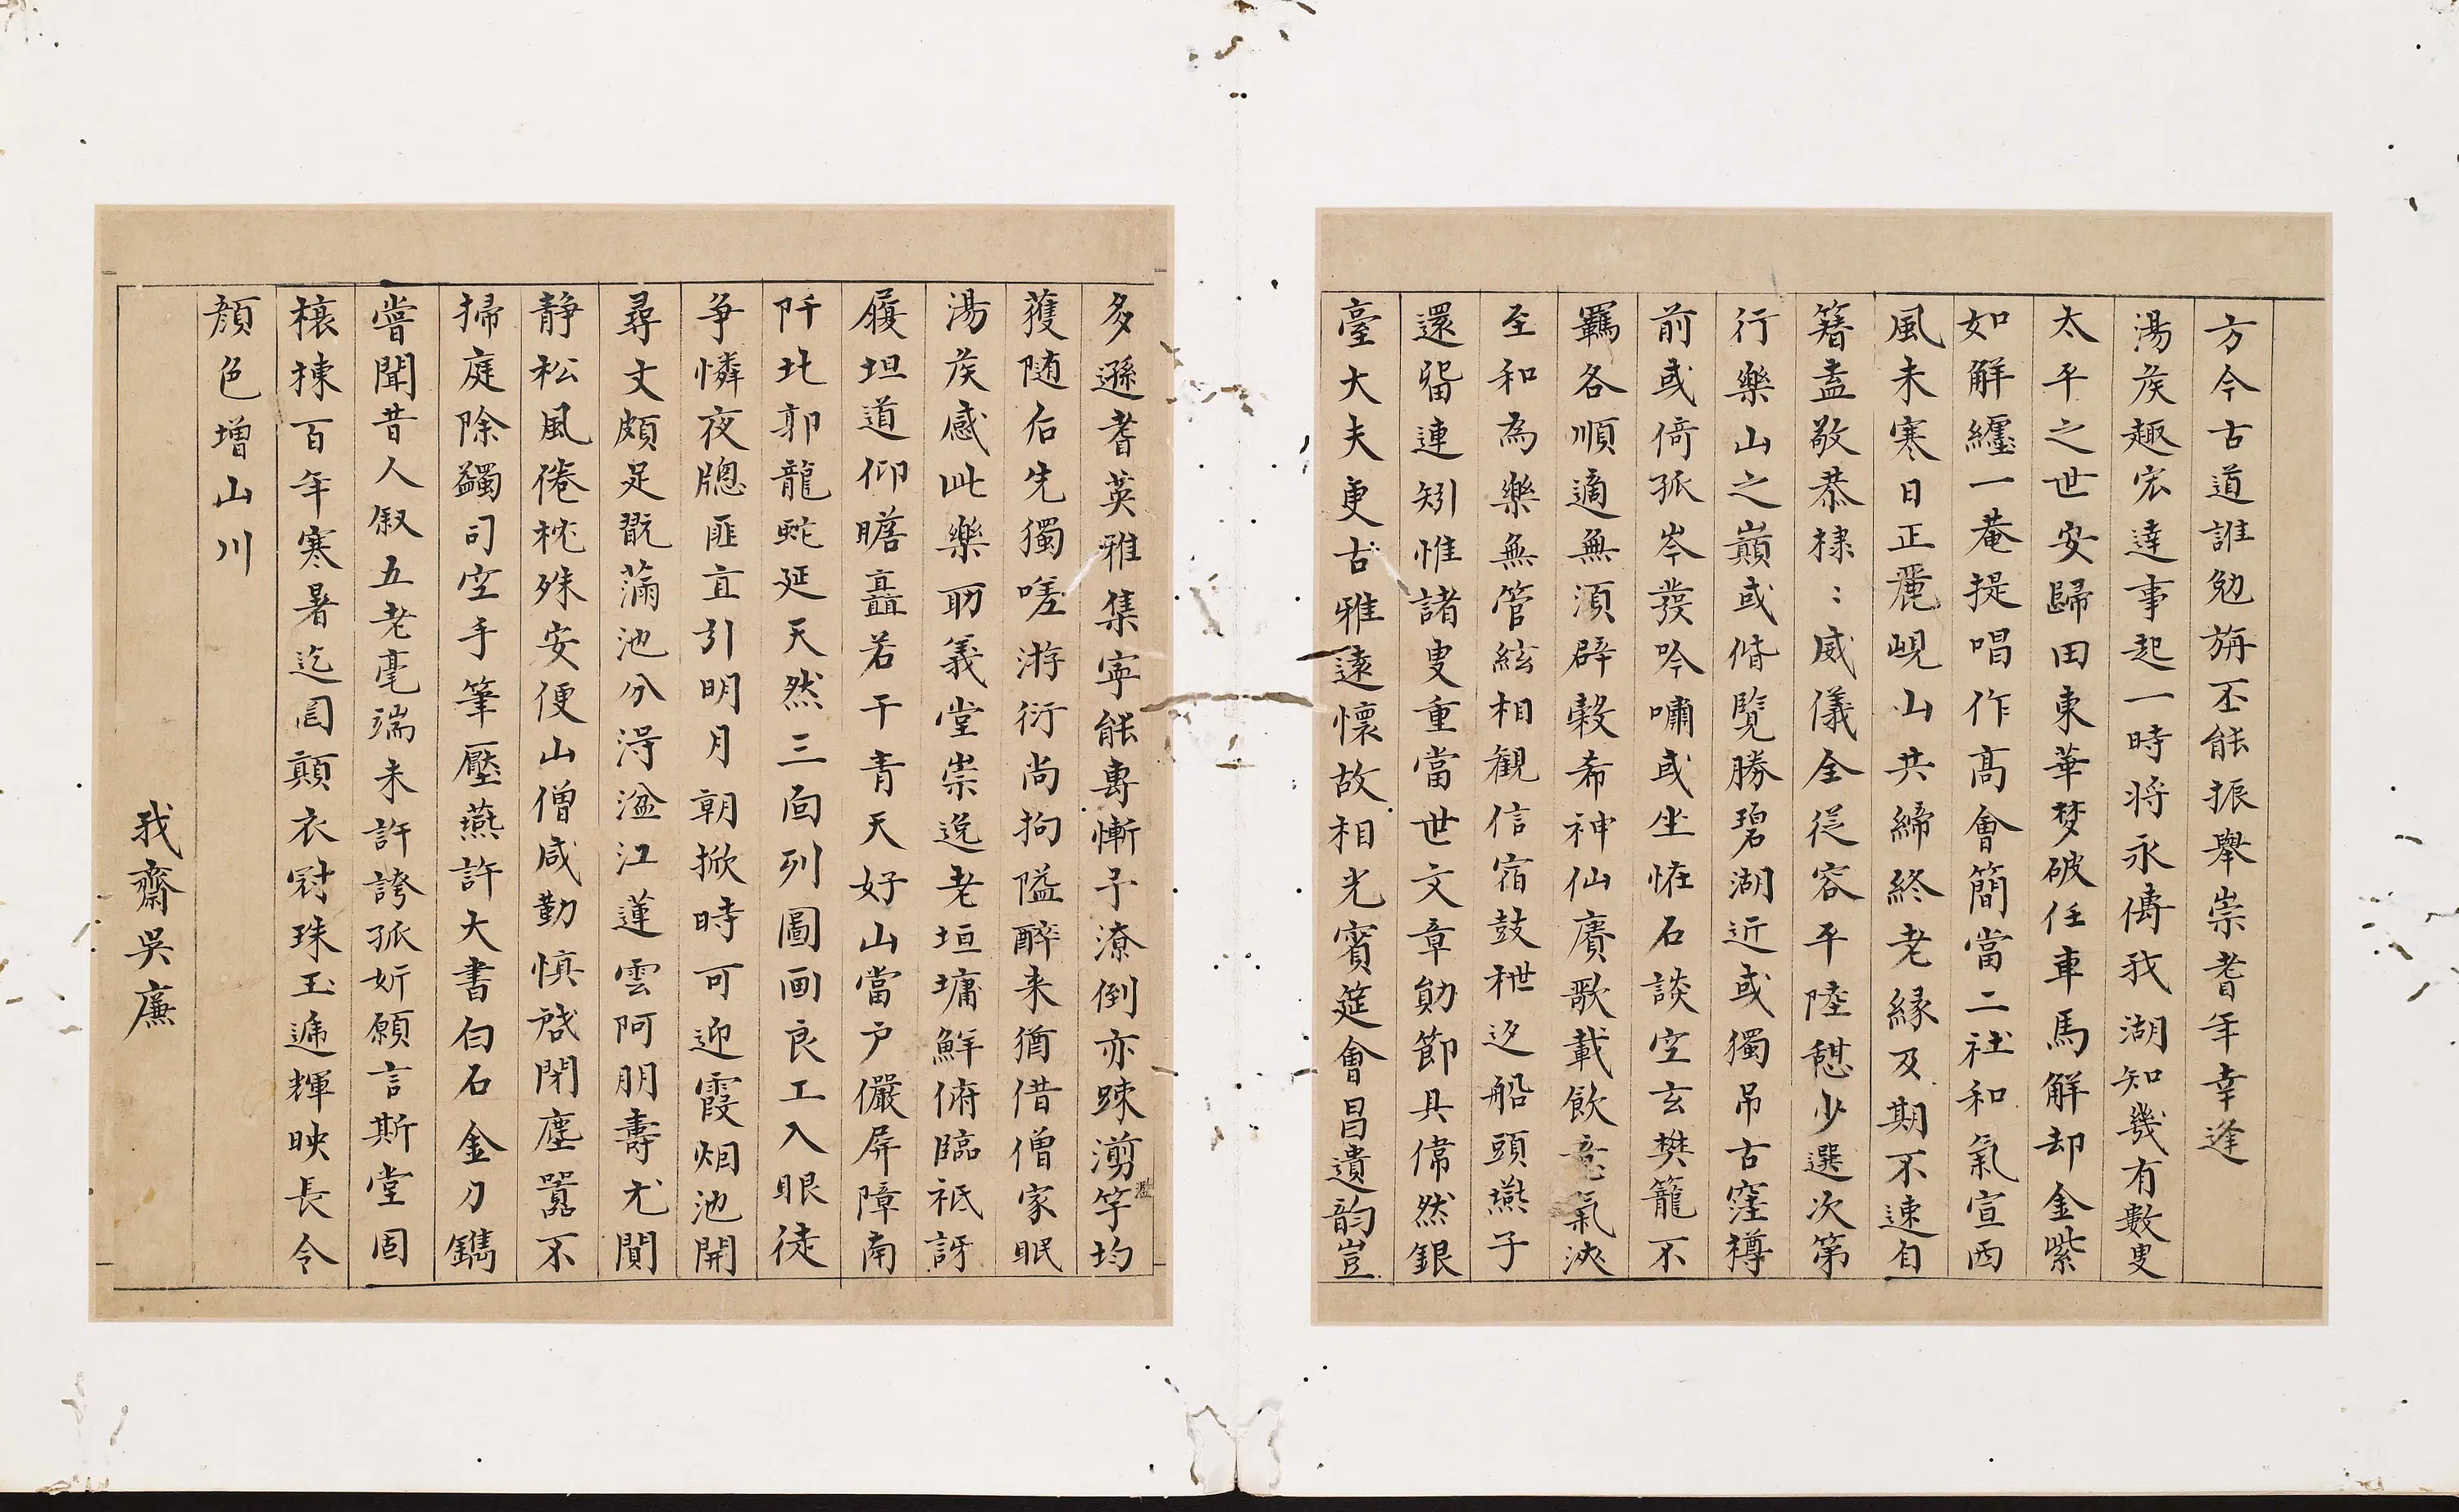 方今古道誰勉旃丕能振舉崇耆年幸逢
湯矦趣宏達事起一時將永傳我湖知幾有數叟
太平之世安歸田東華梦破任車馬解却金紫
如解纏一菴提唱作高會簡當二社和氣宣西
風未寒日正麗峴山共締終老緣及期不速自
簪盍敬恭棣〻威儀全從容平陸憇少選次第
行樂山之巔或偹覽勝碧湖近或獨吊古窪樽
前或倚孤岑發吟嘯或坐恠石談空玄樊籠不
羈各順適無須辟穀希神仙賡歌載飲意氣浹
至和為樂無管絃相觀信宿鼓枻返船頭燕子
還留連矧惟諸叟重當世文章勛節具偉然銀
臺大夫更古雅遠懷故相光賓筵會昌遺韵豈
多遜耆英雅集寜能專慚予潦倒亦踈澷竽均
獲随后先獨嗟游衍尚拘隘醉来猶借僧家眠
湯矦感此樂助義堂崇逸老垣墉鮮俯臨祗訝
履坦道仰瞻矗若干青天好山當户儼屏障南
阡北郭龍虵延天然三面列圖画良工入眼徒
争憐夜牎匪直引明月朝掀時可迎霞烟池開
尋丈頗足翫蒲池分淂湓江蓮雲阿朋壽尤閴
静松風倦枕殊安便山僧咸勤慎啟閉塵囂不
掃庭除蠲司空手筆壓燕許大書白石金刀鐫
嘗聞昔人叙五老毫端未許誇孤姸願言斯堂固
榱棟百年寒暑迄囘顛衣冠珠玉逓輝映長令
顏色增山川
我齋吳廉